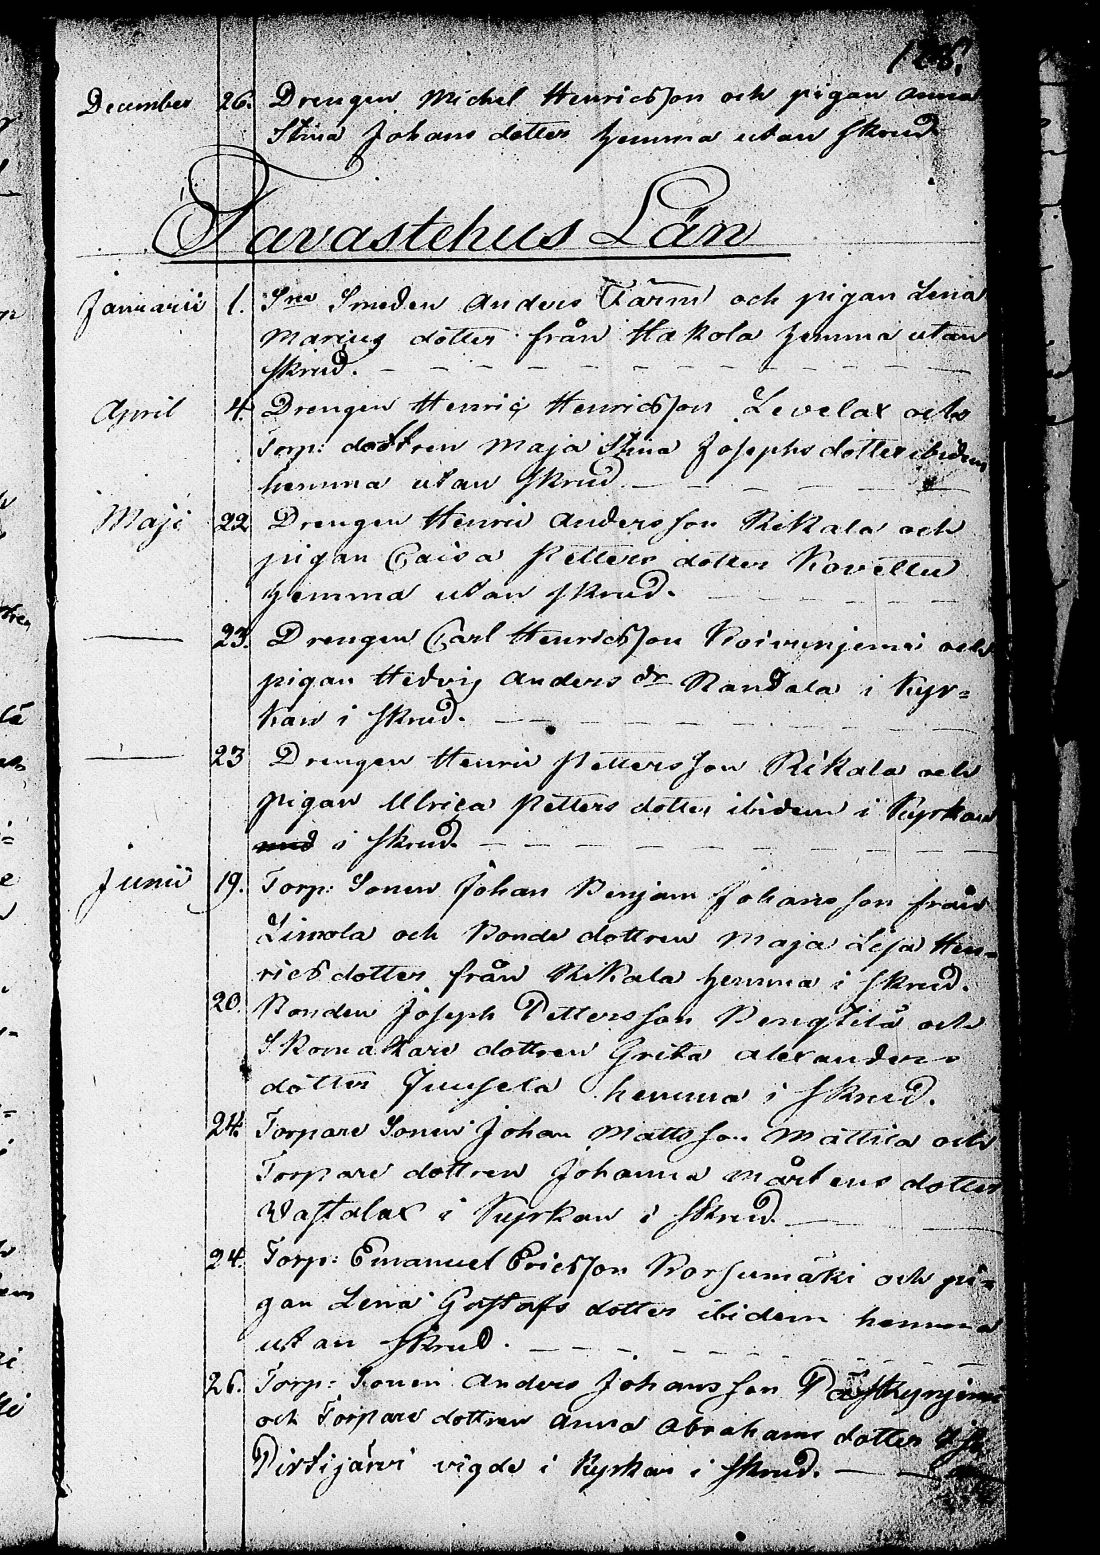 December 26. Drengen Michel Henricsson och pigan Anna
Stina Johans dotter hemma utan skrud
Tavastehus Län
Januarii 1. Smeden Anders Färm och pigan Lena
Marius dotter från Hakola hemma utan
skrud.
April 4. Drengen Henric Henricsson Levelax och
Torp: dottren Maja Stina Josephs dotter ibidem
hemma utan skrud.
Maji 22 Drengen Henric Andersson Rikala och
pigan Caisa Petters dotter Kovettu
hemma utan skrud.
23. Drengen Carl Henricsson Koivunjemi och
pigan Hedvig Anders dr Randala i Kyr=
kan i skrud.
23 Drengen Henric Pettersson Rikala och
pigan Ulrica Petters dotter ibidem i Kyrkan
i skrud.
Junii 19. Torp: Sonen Johan Benjam Johansson från
Limola och Bonde dottren Maja Lisa Hen=
rics dotter från Rikala hemma i skrud.
20. Bonden Joseph Pettersson Bengtilä och
Skomakare dottren Greta Alexanders
dotter Junsela hemma i skrud.
24. Torpare Sonen Johan Mattsson Mattila och
Torpare dottren Johanna Mårtens dotter
Vastalax i Kyrkan i skrud.
24. Torp: Emanuel Ericsson Korsumäki och pi=
gan Lena Gustafs dotter ibidem hemma
utan skrud.
26. Torp: Sonen Anders Johansson
och Torpare dottren Anna Abrahams dotter
Pirtijärvi vigde i Kyrkan i skrud.